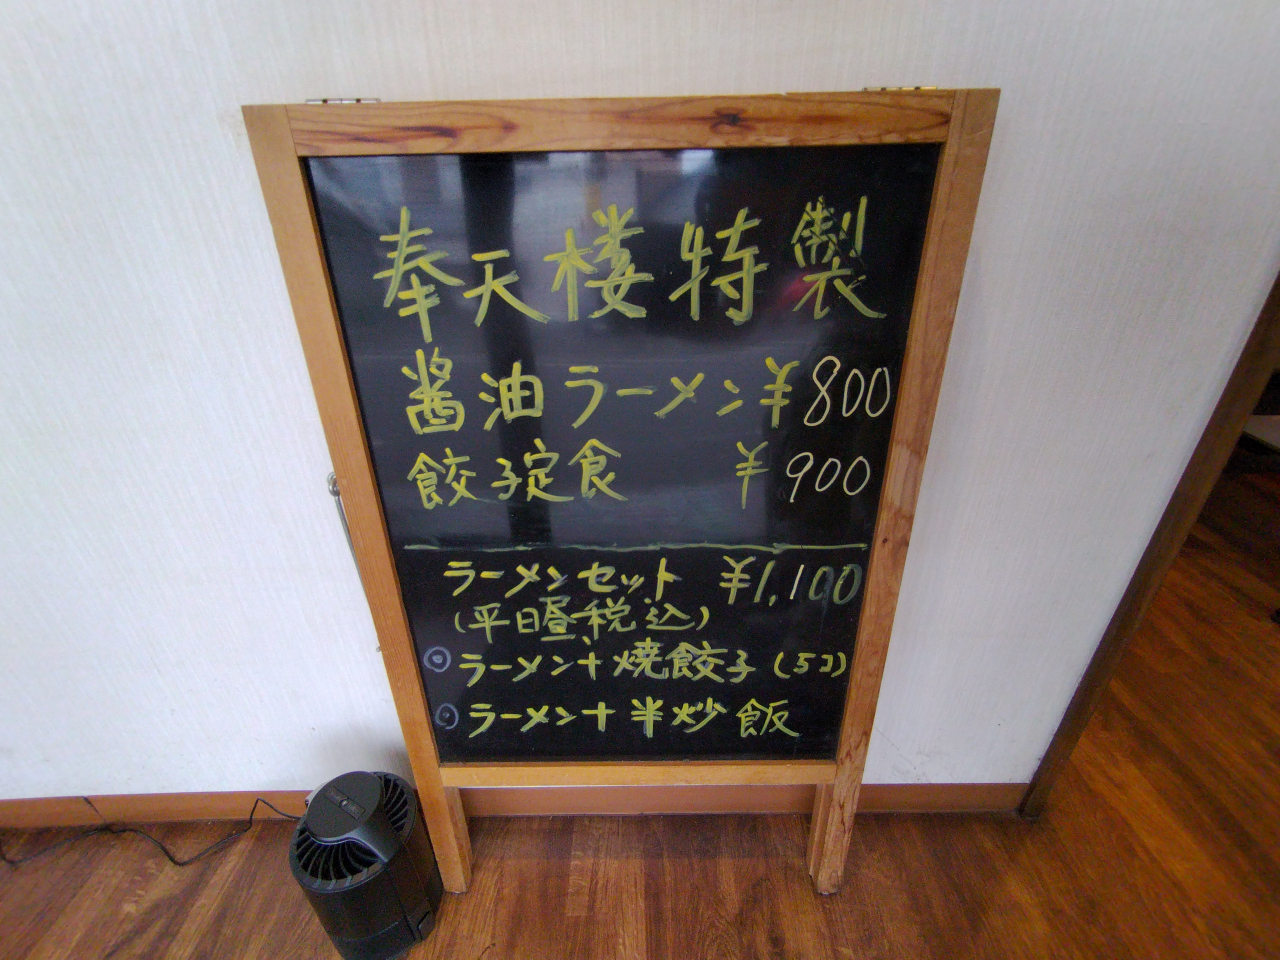 奉天楼特製
醤油ラーメン¥800
餃子定食 ¥900
ラーメンセット ¥1,100
(平日昼、税込)
◎ラーメン+焼餃子(5コ)
◎ラーメン+半炒飯